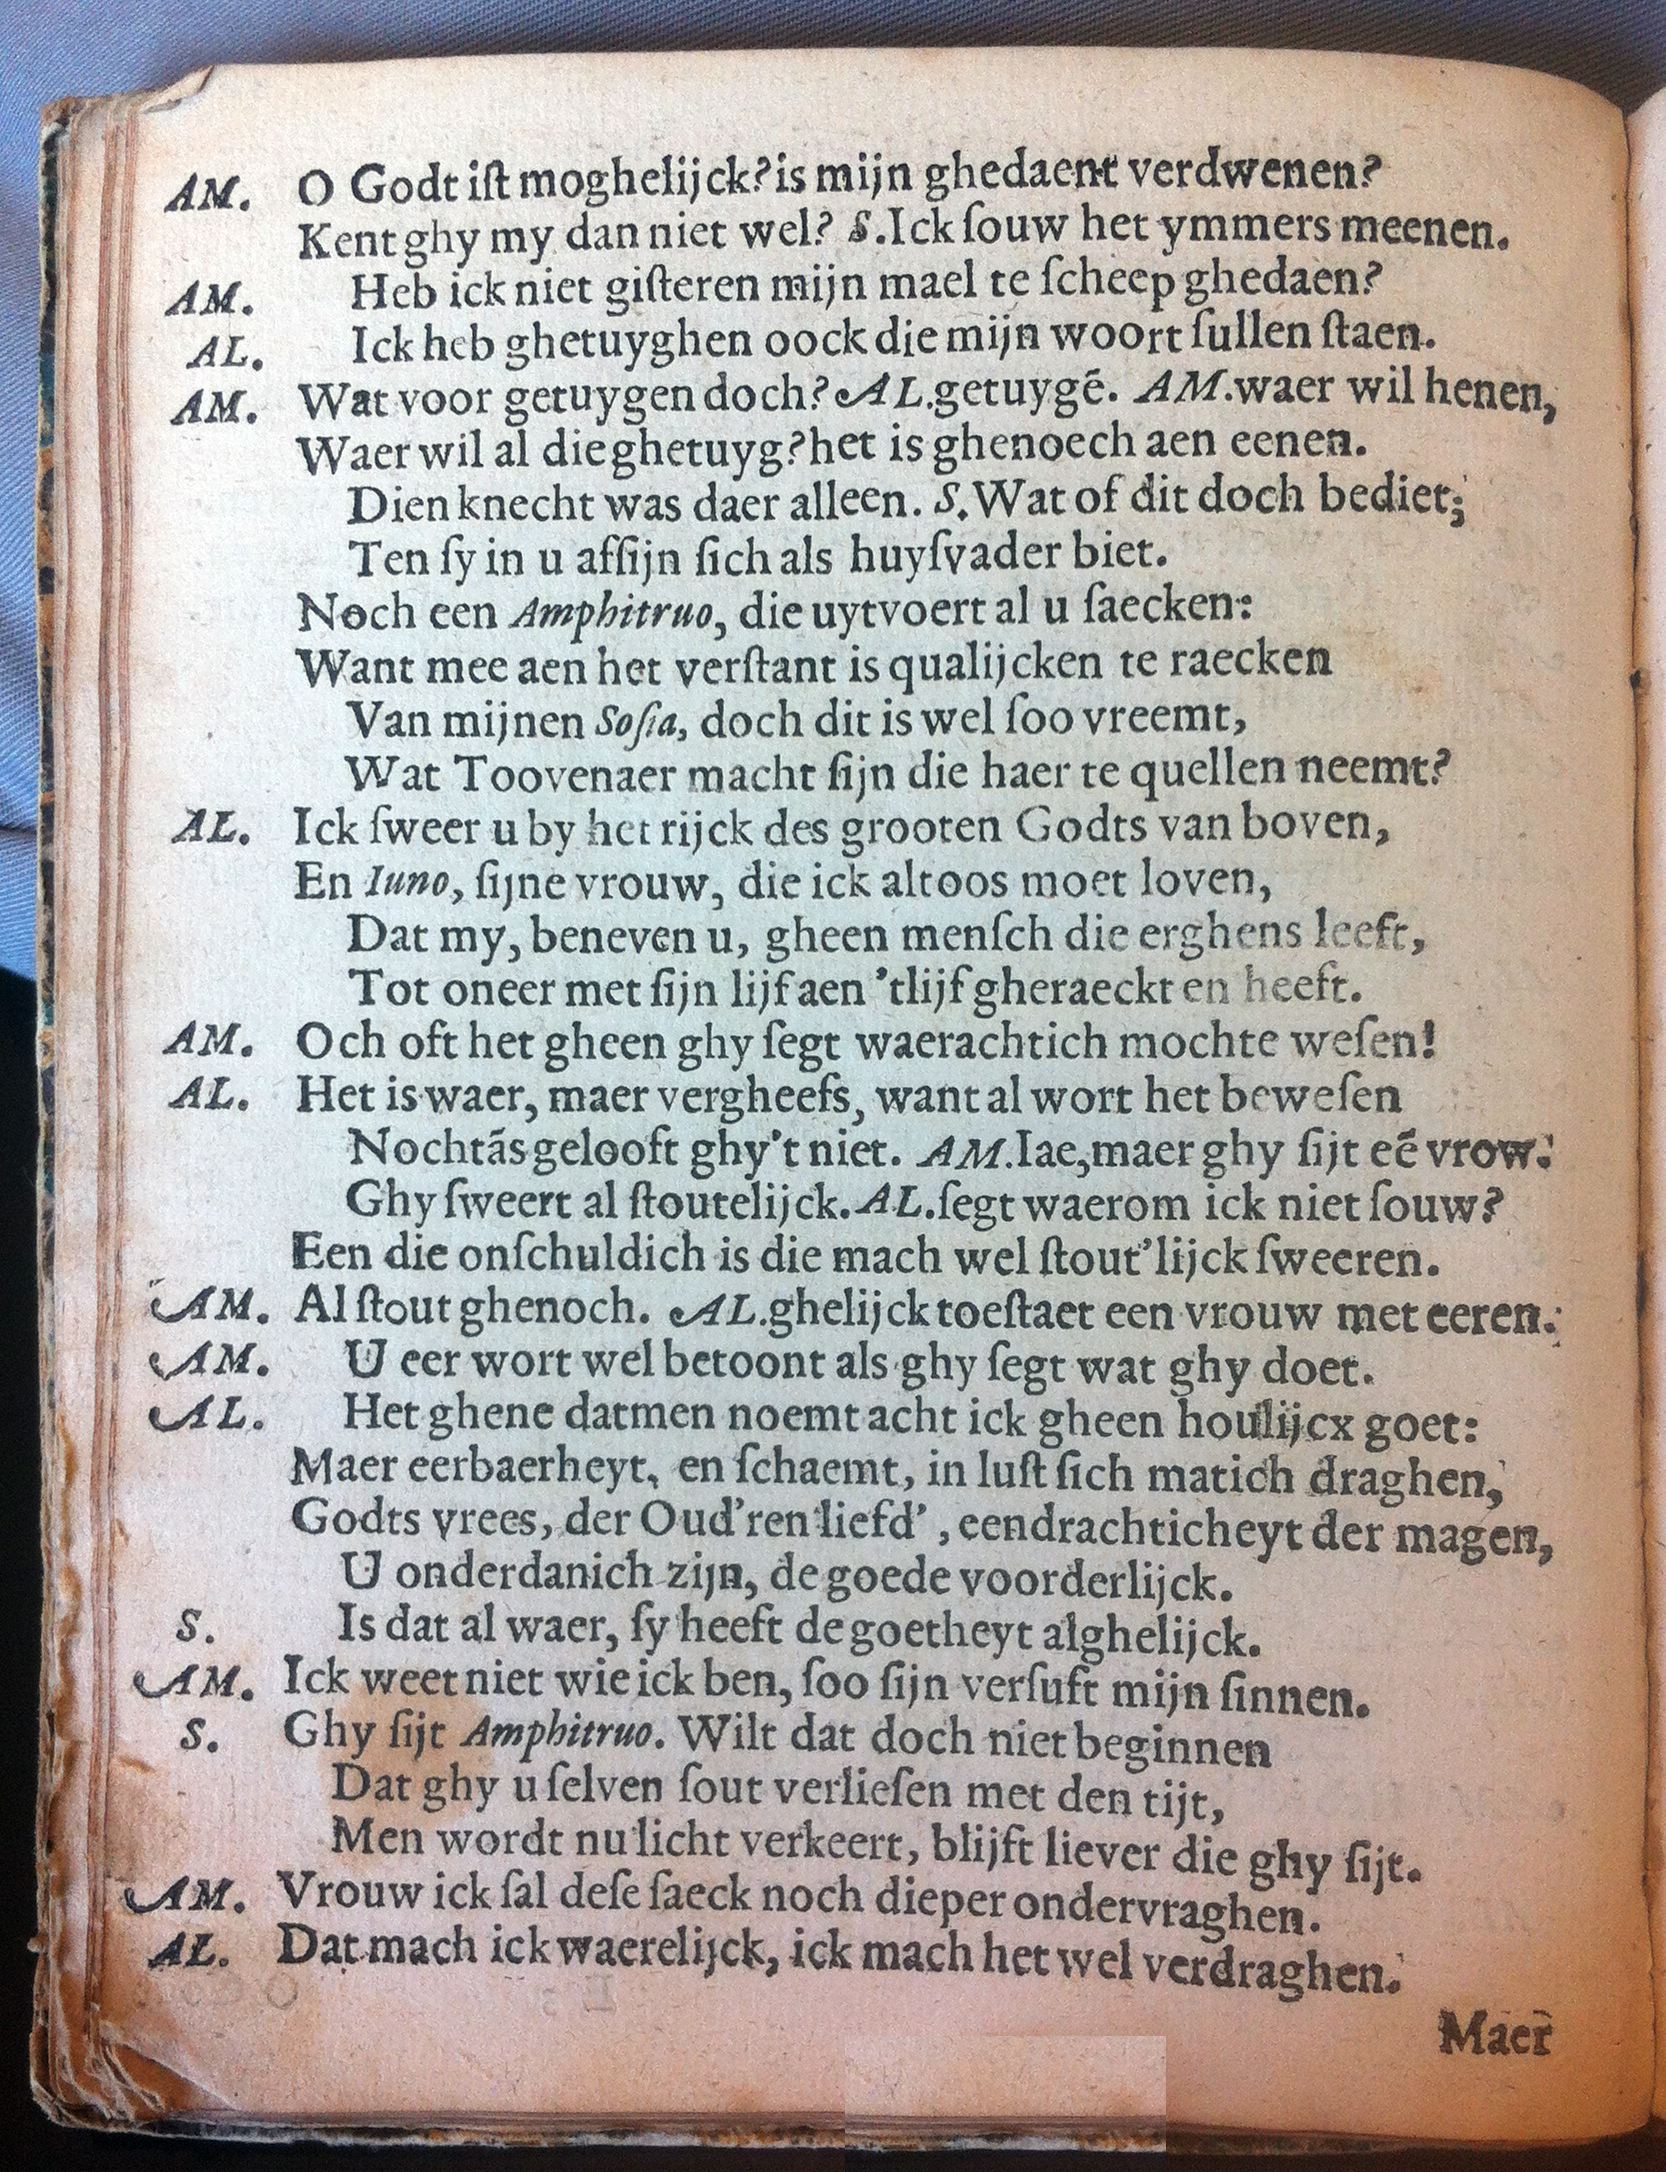 AM. O Godt iſt moghelijck? is mijn ghedaent verdwenen?
Kent ghy my dan niet wel? S. Ick ſouw het ymmers meenen.
AM. Heb ick niet giſteren mijn mael te ſcheep ghedaen?
AL. Ick heb ghetuyghen oock die mijn woort ſullen ſtaen.
AM. Wat voor getuygen doch? AL. getuygẽ. AM. waer wil henen,
Waer wil al die ghetuyg? het is ghenoech aen eenen.
Dien knecht was daer alleen. S. Wat of dit doch bediet;
Ten ſy in u afſijn ſich als huyſvader biet.
Noch een Amphitruo, die uytvoert al u ſaecken:
Want mee aen het verſtant is qualijcken te raecken
Van mijnen Soſia, doch dit is wel ſoo vreemt,
Wat Toovenaer macht ſijn die haer te quellen neemt?
AL. Ick ſweer u by het rijck des grooten Godts van boven,
En Iuno, ſijne vrouw, die ick altoos moet loven,
Dat my, beneven u, gheen menſch die erghens leeft,
Tot oneer met ſijn lijf aen 'tlijf gheraeckt en heeft.
AM. Och oft het gheen ghy ſegt waerachtich mochte weſen!
AL. Het is waer, maer vergheefs, want al wort het beweſen
Nochtãs gelooft ghy't niet. AM. Iae, maer ghy ſijt eẽ vrow.
Ghy ſweert al ſtoutelijck. AL. ſegt waerom ick niet ſouw?
Een die onſchuldich is die mach wel ſtout'lijck ſweeren.
AM. Al ſtout ghenoch. AL. ghelijck toeſtaet een vrouw met eeren.
AM. U eer wort wel betoont als ghy ſegt wat ghy doet.
AL. Het ghene datmen noemt acht ick gheen houlijcx goet:
Maer eerbaerheyt, en ſchaemt, in luſt ſich matich draghen,
Godts vrees, der Oud'ren liefd', eendrachticheyt der magen,
U onderdanich zijn, de goede voorderlijck.
S. Is dat al waer, ſy heeft de goetheyt alghelijck.
AM. Ick weet niet wie ick ben, ſoo ſijn verſuft mijn ſinnen.
S. Ghy ſijt Amphitruo. Wilt dat doch niet beginnen
Dat ghy u ſelven ſout verlieſen met den tijt,
Men wordt nu licht verkeert, blijft liever die ghy ſijt.
AM. Vrouw ick ſal deſe ſaeck noch dieper ondervraghen.
AL. Dat mach ick waerelijck, ick mach het wel verdraghen.
Maer